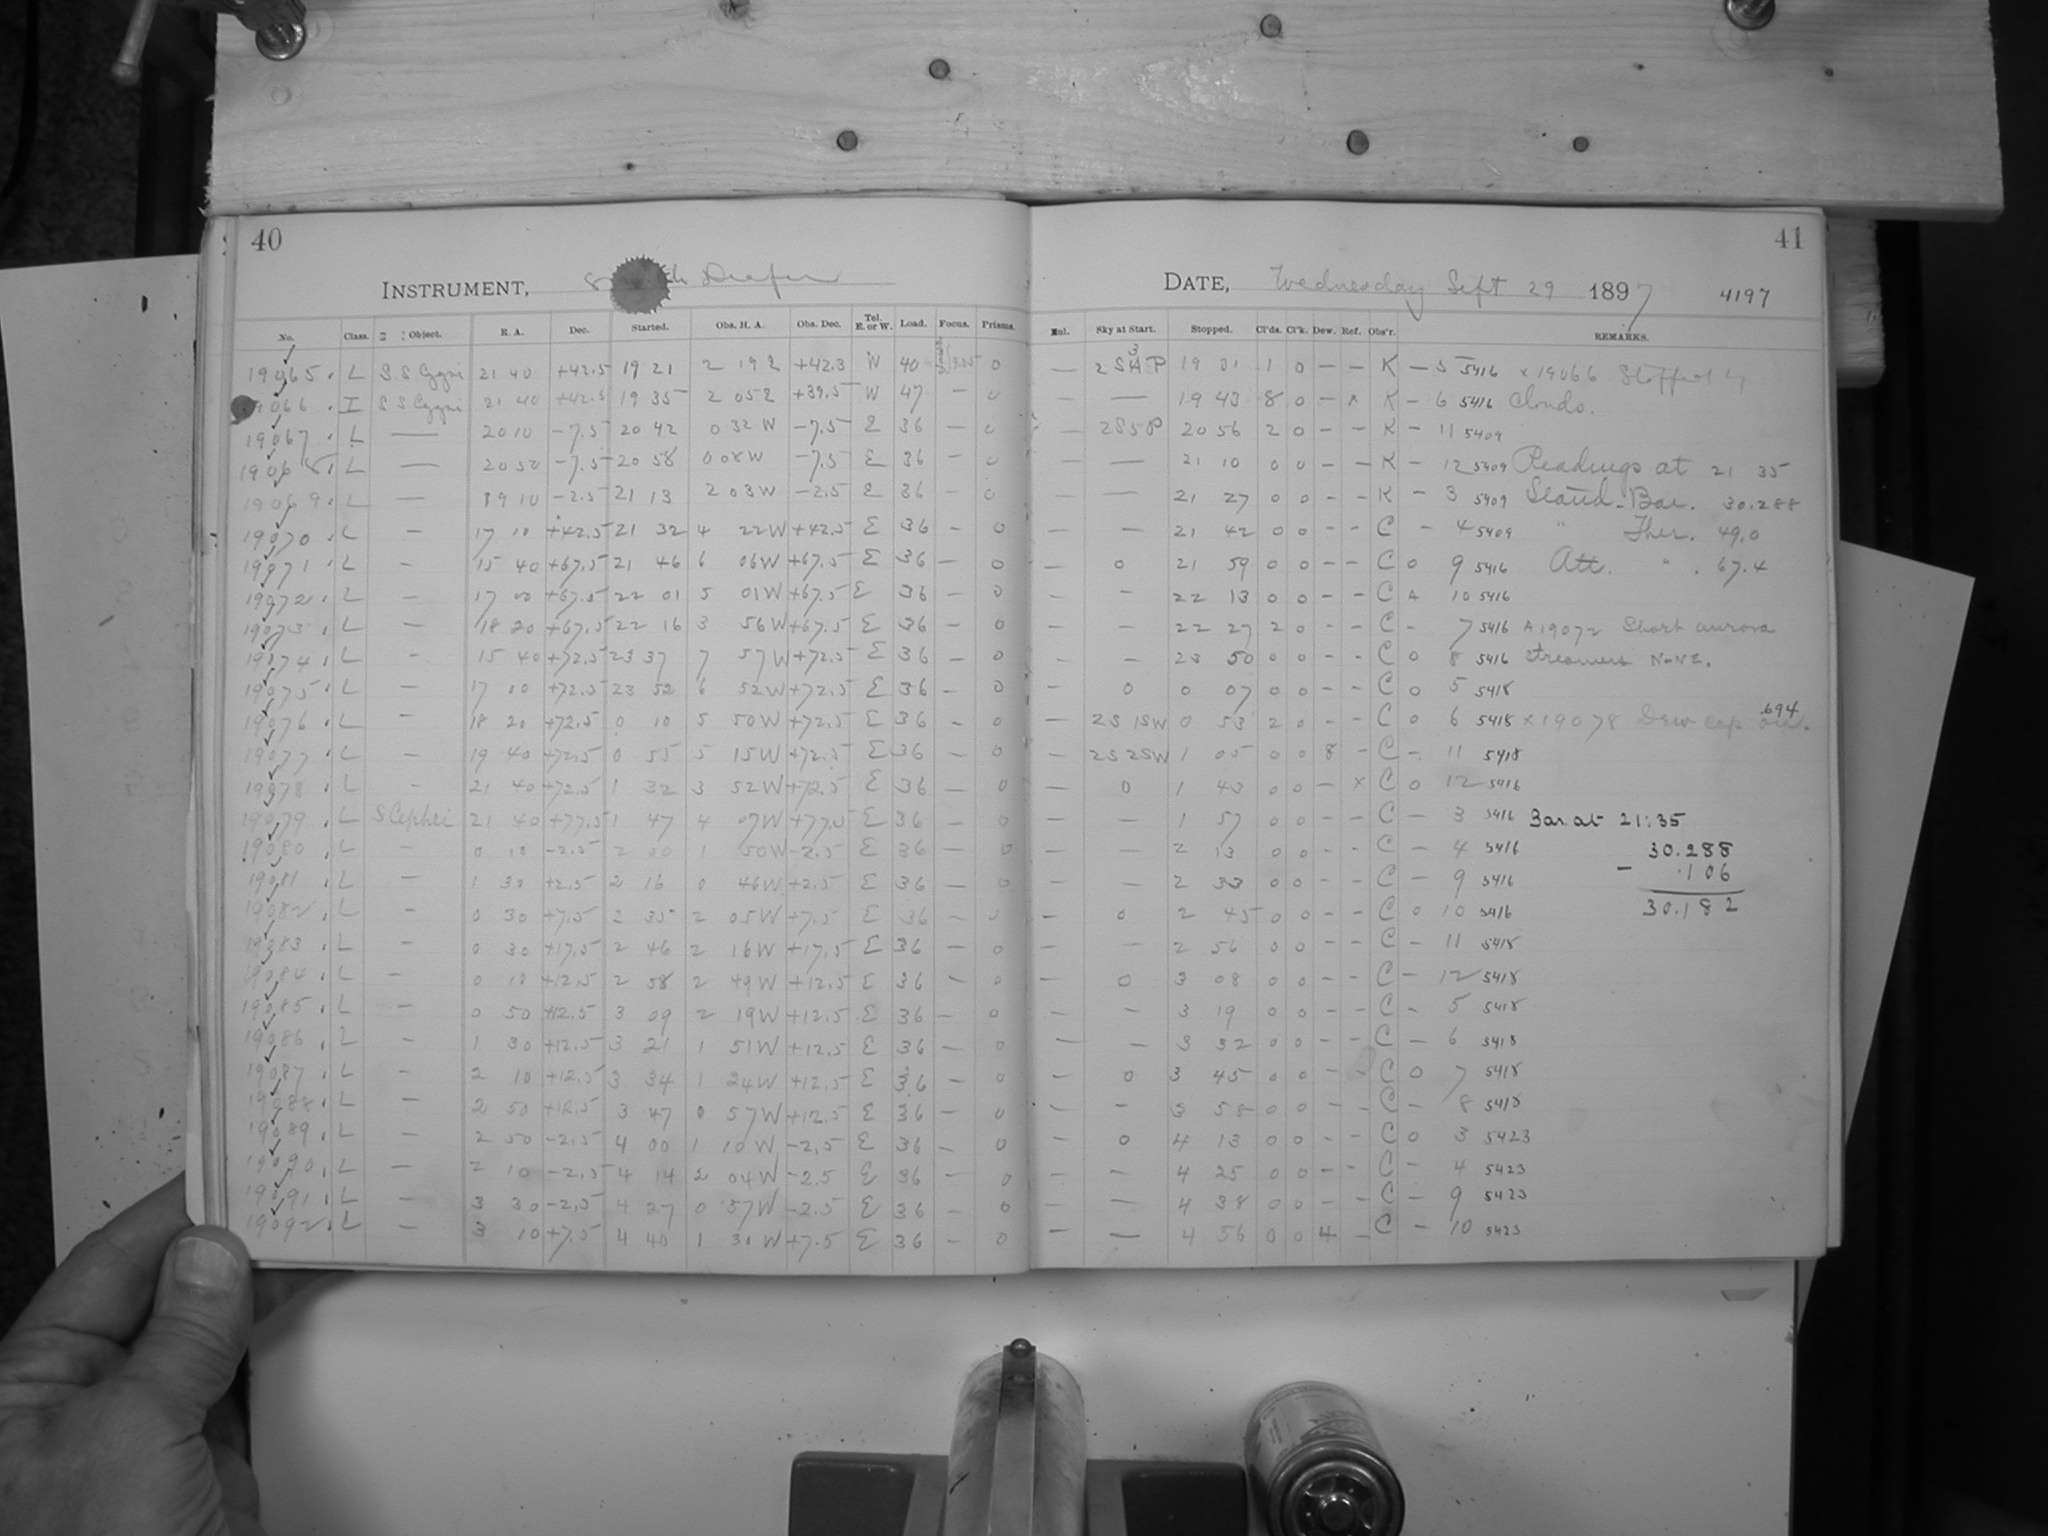 40
41
INSTRUMENT, 8 Draper
DATE, Wednesday Sept 29 1897 4197
No. Class. Object. R. A. Dec. Started. Obs. H. A. Obs. Dec. Tel. E. or W. Load. Focus. Prisms. Enl. Sky at Start. Stopped. Cl'ds. Cl'k. Dew. Ref. Obs'r. REMARKS.
19065 . L S S Cygni 21 40 +42.5 19 21 2 19 +42.3 W 40 0 — 19 01 1 0 — — K — 5 5416 x 19066 Stopped by
066 . I S S Cygni 21 40 +42.5 19 35 2 05 +39.5 W 47 — 0 — — 19 43 8 0 — x K — 6 5416 Clouds.
19067 . L — 20 10 -7.5 20 42 0 32 W -7.5 E 36 — 0 — 2S5P 20 56 2 0 — — K — 11 5409
19068 . L — 20 50 -7.5 20 58 0 08 W -7.5 E 36 — 0 — — 21 10 0 0 — — K — 12 5409 Readings at 21 35
19069 . L — 19 10 -2.5 21 13 2 03 W -2.5 E 36 — 0 — — 21 27 0 0 — — K — 3 5409 Stand. Bar. 30.288
19070 . L — 17 10 +42.5 21 32 4 22 W +42.5 E 36 — 0 — — 21 42 0 0 — — C — 4 5409 " Ther. 49.0
19071 . L — 15 40 +67.5 21 46 6 06 W +67.5 E 36 — 0 — 0 21 59 0 0 — — C 0 9 5416 Att. " . 67.4
19072 . L — 17 00 +67.5 22 01 5 01 W +67.5 E 36 — 0 — — 22 13 0 0 — — C A 10 5416
19073 . L — 18 20 +67.5 22 16 3 56 W +67.5 E 36 — 0 — — 22 27 2 0 — — C — 7 5416 A 19072 Short aurora
19074 . L — 15 40 +72.5 23 37 7 57 W +72.5 E 36 — 0 — — 23 50 0 0 — — C 0 8 5416 streamers N-NE.
19075 . L — 17 00 +72.5 23 52 6 52 W +72.5 E 36 — 0 — 0 0 07 0 0 — — C 0 5 5418
19076 . L — 18 20 +72.5 0 10 5 50 W +72.5 E 36 — 0 — 2S 1SW 0 53 2 0 — — C 0 6 5418 x 19078 Dew cap .694
19077 . L — 19 40 +72.5 0 55 5 15 W +72.5 E 36 — 0 — 2S 2SW 1 05 0 0 8 — C — 11 5418
19078 . L — 21 40 +72.5 1 32 3 52 W +72.5 E 36 — 0 — 0 1 43 0 0 — x C 0 12 5416
19079 . L S Cephei 21 40 +77.5 1 47 4 07 W +77.5 E 36 — 0 — — 1 57 0 0 — — C — 3 5416 Bar. at 21:35
19080 . L — 0 10 -2.5 2 00 1 50 W -2.5 E 36 — 0 — — 2 13 0 0 — — C — 4 5416 30.288
19081 . L — 1 30 +2.5 2 16 0 46 W +2.5 E 36 — 0 — — 2 33 0 0 — — C — 9 5416 - .106
19082 . L — 0 30 +7.5 2 35 2 05 W +7.5 E 36 — 0 — 0 2 45 0 0 — — C 0 10 5416 30.182
19083 . L — 0 30 +17.5 2 46 2 16 W +17.5 E 36 — 0 — — 2 56 0 0 — — C — 11 5418
19084 . L — 0 10 +12.5 2 58 2 49 W +12.5 E 36 — 0 — 0 3 08 0 0 — — C — 12 5418
19085 . L — 0 50 +12.5 3 09 2 19 W +12.5 E 36 — 0 — — 3 19 0 0 — — C — 5 5418
19086 . L — 1 30 +12.5 3 21 1 51 W +12.5 E 36 — 0 — — 3 32 0 0 — — C — 6 5418
19087 . L — 2 10 +12.5 3 34 1 24 W +12.5 E 36 — 0 — 0 3 45 0 0 — — C 0 7 5418
19088 . L — 2 50 +12.5 3 47 0 57 W +12.5 E 36 — 0 — — 3 58 0 0 — — C — 8 5418
19089 . L — 2 50 -2.5 4 00 1 10 W -2.5 E 36 — 0 — 0 4 13 0 0 — — C 0 3 5423
19090 . L — 2 10 -2.5 4 14 2 04 W -2.5 E 36 — 0 — — 4 25 0 0 — — C — 4 5423
19091 . L — 3 30 -2.5 4 27 0 57 W -2.5 E 36 — 0 — — 4 38 0 0 — — C — 9 5423
19092 . L — 3 10 +7.5 4 40 1 30 W +7.5 E 36 — 0 — — 4 56 0 0 4 — C — 10 5423